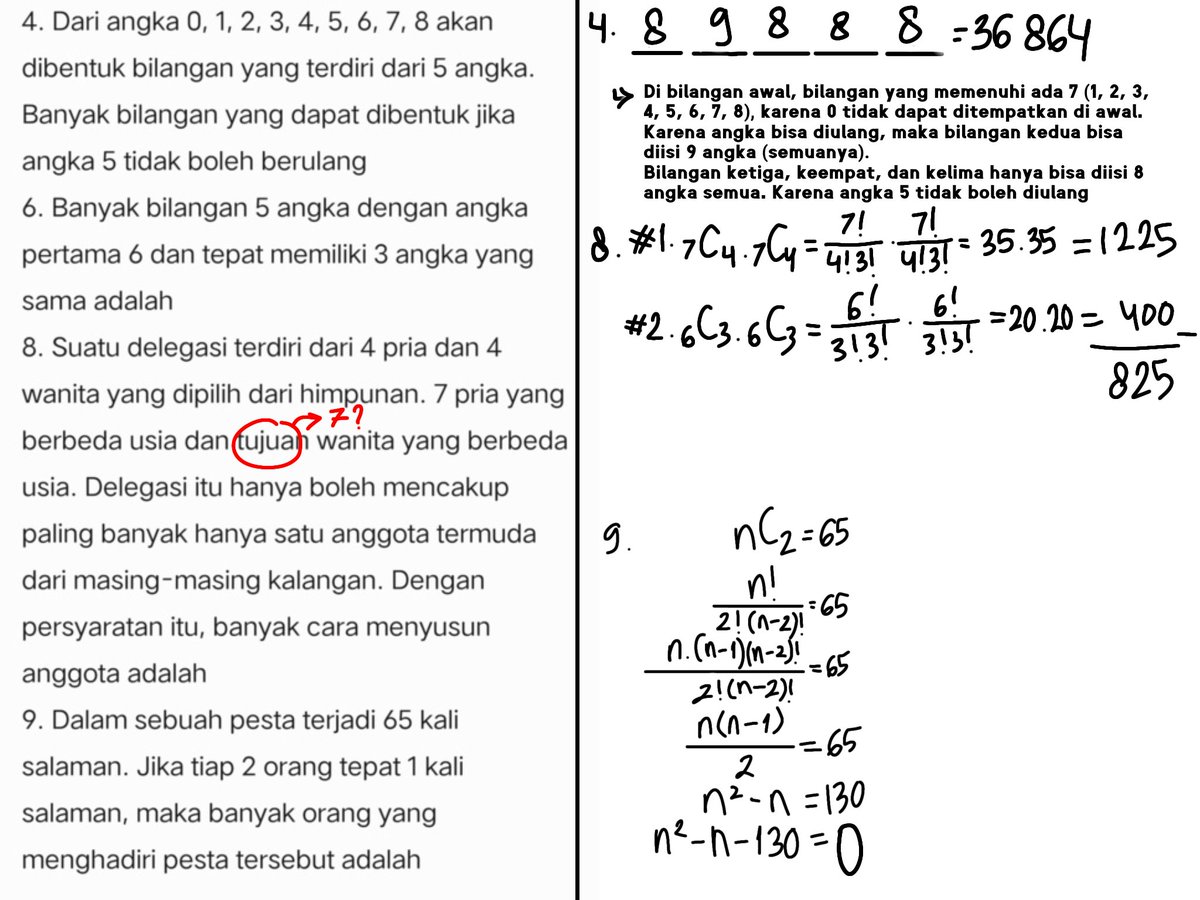 4. Dari angka 0, 1, 2, 3, 4, 5, 6, 7, 8 akan
dibentuk bilangan yang terdiri dari 5 angka.
Banyak bilangan yang dapat dibentuk jika
angka 5 tidak boleh berulang
6. Banyak bilangan 5 angka dengan angka
pertama 6 dan tepat memiliki 3 angka yang
sama adalah
8. Suatu delegasi terdiri dari 4 pria dan 4
wanita yang dipilih dari himpunan. 7 pria yang
→ 7?
berbeda usia dan tujuan wanita yang berbeda
usia. Delegasi itu hanya boleh mencakup
paling banyak hanya satu anggota termuda
dari masing-masing kalangan. Dengan
persyaratan itu, banyak cara menyusun
anggota adalah
9. Dalam sebuah pesta terjadi 65 kali
salaman. Jika tiap 2 orang tepat 1 kali
salaman, maka banyak orang yang
menghadiri pesta tersebut adalah
4. 8 9 8 8 8 = 36 864
↳ Di bilangan awal, bilangan yang memenuhi ada 7 (1, 2, 3,
4, 5, 6, 7, 8), karena 0 tidak dapat ditempatkan di awal.
Karena angka bisa diulang, maka bilangan kedua bisa
diisi 9 angka (semuanya).
Bilangan ketiga, keempat, dan kelima hanya bisa diisi 8
angka semua. Karena angka 5 tidak boleh diulang
8. #1. 7C4 . 7C4 = 7!/4!3! . 7!/4!3! = 35.35 = 1225
#2. 6C3 . 6C3 = 6!/3!3! . 6!/3!3! = 20.20 = 400 _
825
9. nC2 = 65
n!/2!(n-2)! = 65
n.(n-1)(n-2)!/2!(n-2)! = 65
n(n-1)/2 = 65
n²-n = 130
n²-n-130 = 0